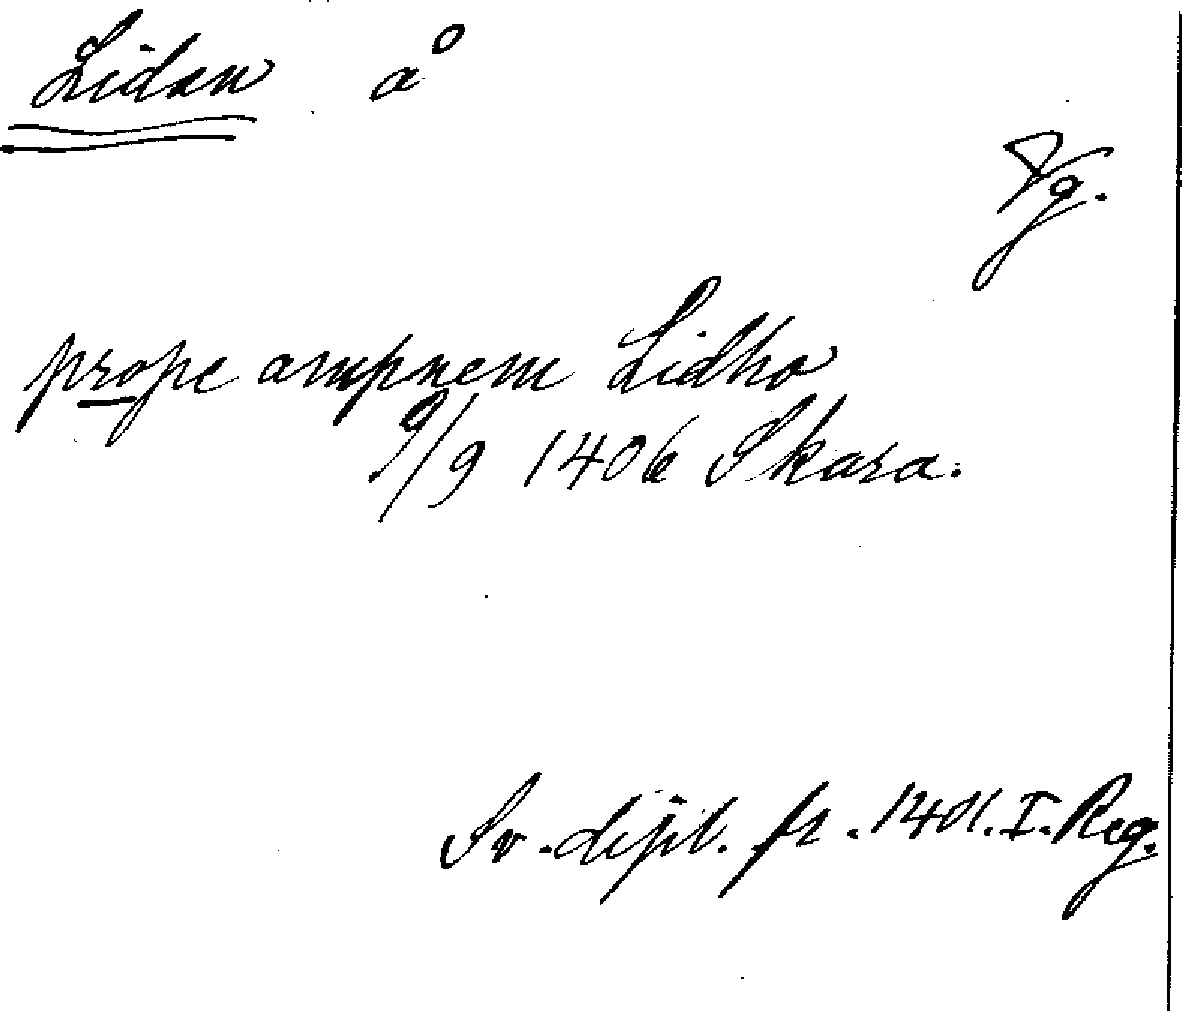 Lidan å
Vg.
prope ampnem Lidho
9/9 1406 Skara.
Sv. dipl. fr. 1401. I. Reg.